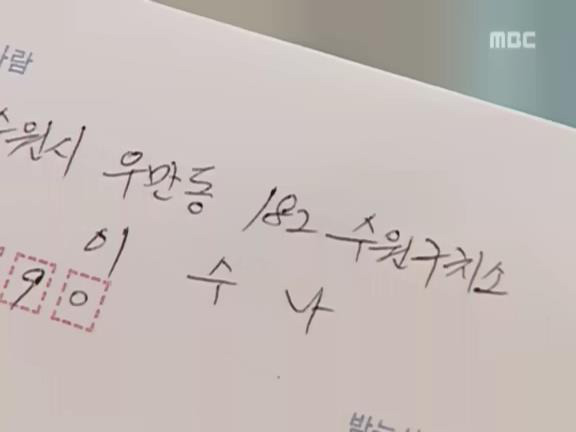 MBC
사람
수원시 우만동 182 수원구치소
이 수 나
90